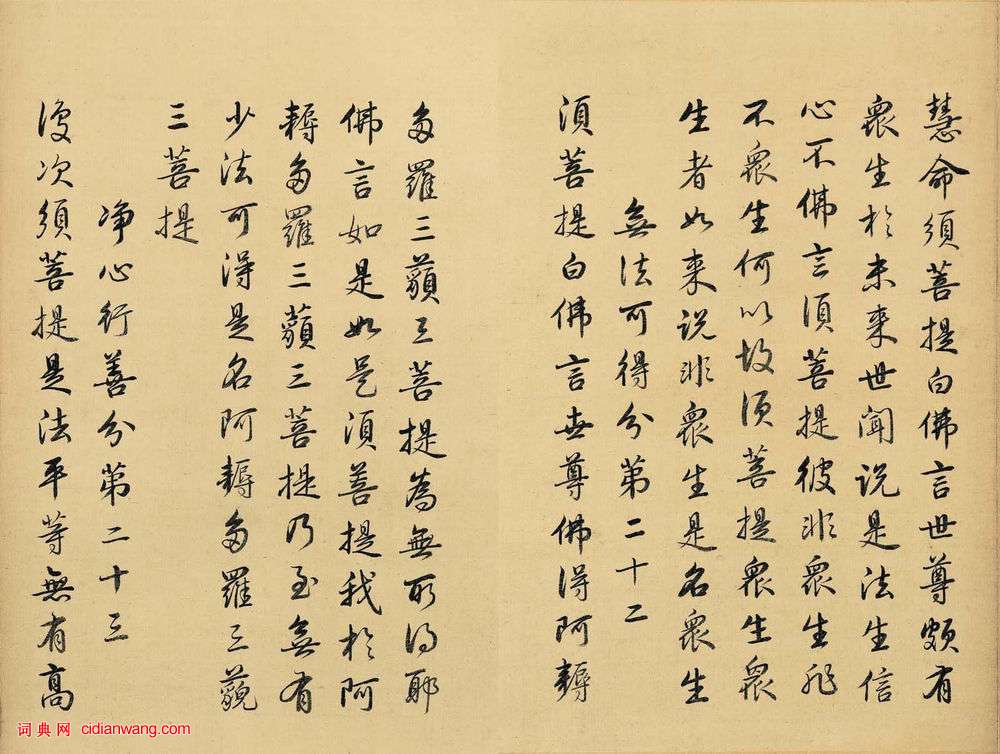 慧命須菩提白佛言世尊頗有
衆生於未来世聞说是法生信
心不佛言須菩提彼非衆生非
不衆生何以故須菩提衆生衆
生者如来说非衆生是名衆生
無法可得分第二十二
須菩提白佛言世尊佛得阿耨
多羅三藐三菩提為無所得耶
佛言如是如是須菩提我於阿
耨多羅三藐三菩提乃至無有
少法可得是名阿耨多羅三藐
三菩提
净心行善分第二十三
復次須菩提是法平等無有高
词典网 cidianwang.com